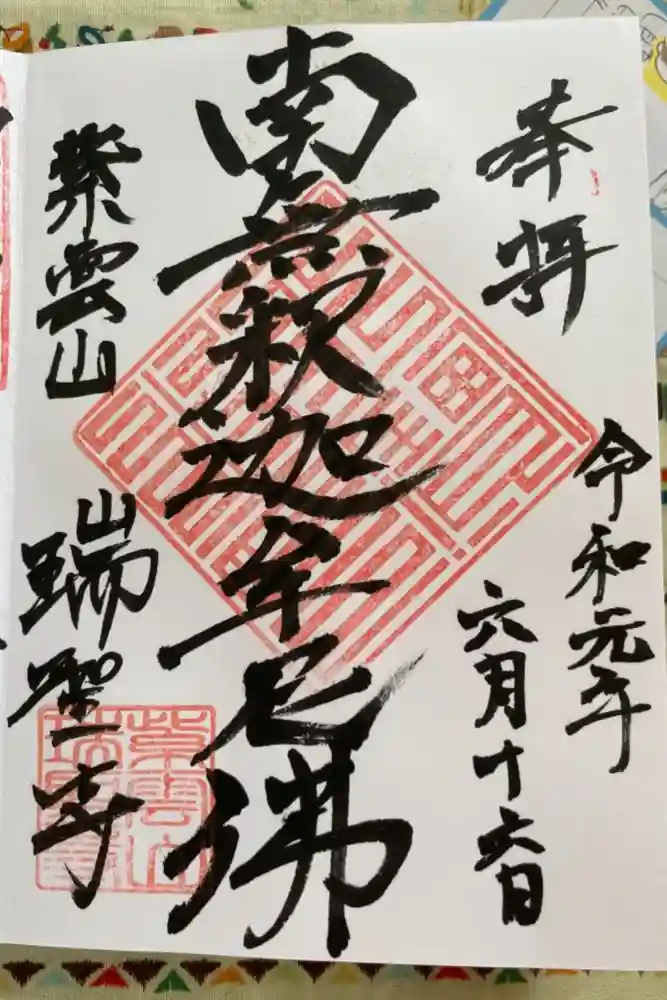 奉拝
令和元年
六月十六日
南無釈迦牟尼佛
紫雲山
瑞聖寺
紫雲山
瑞聖寺